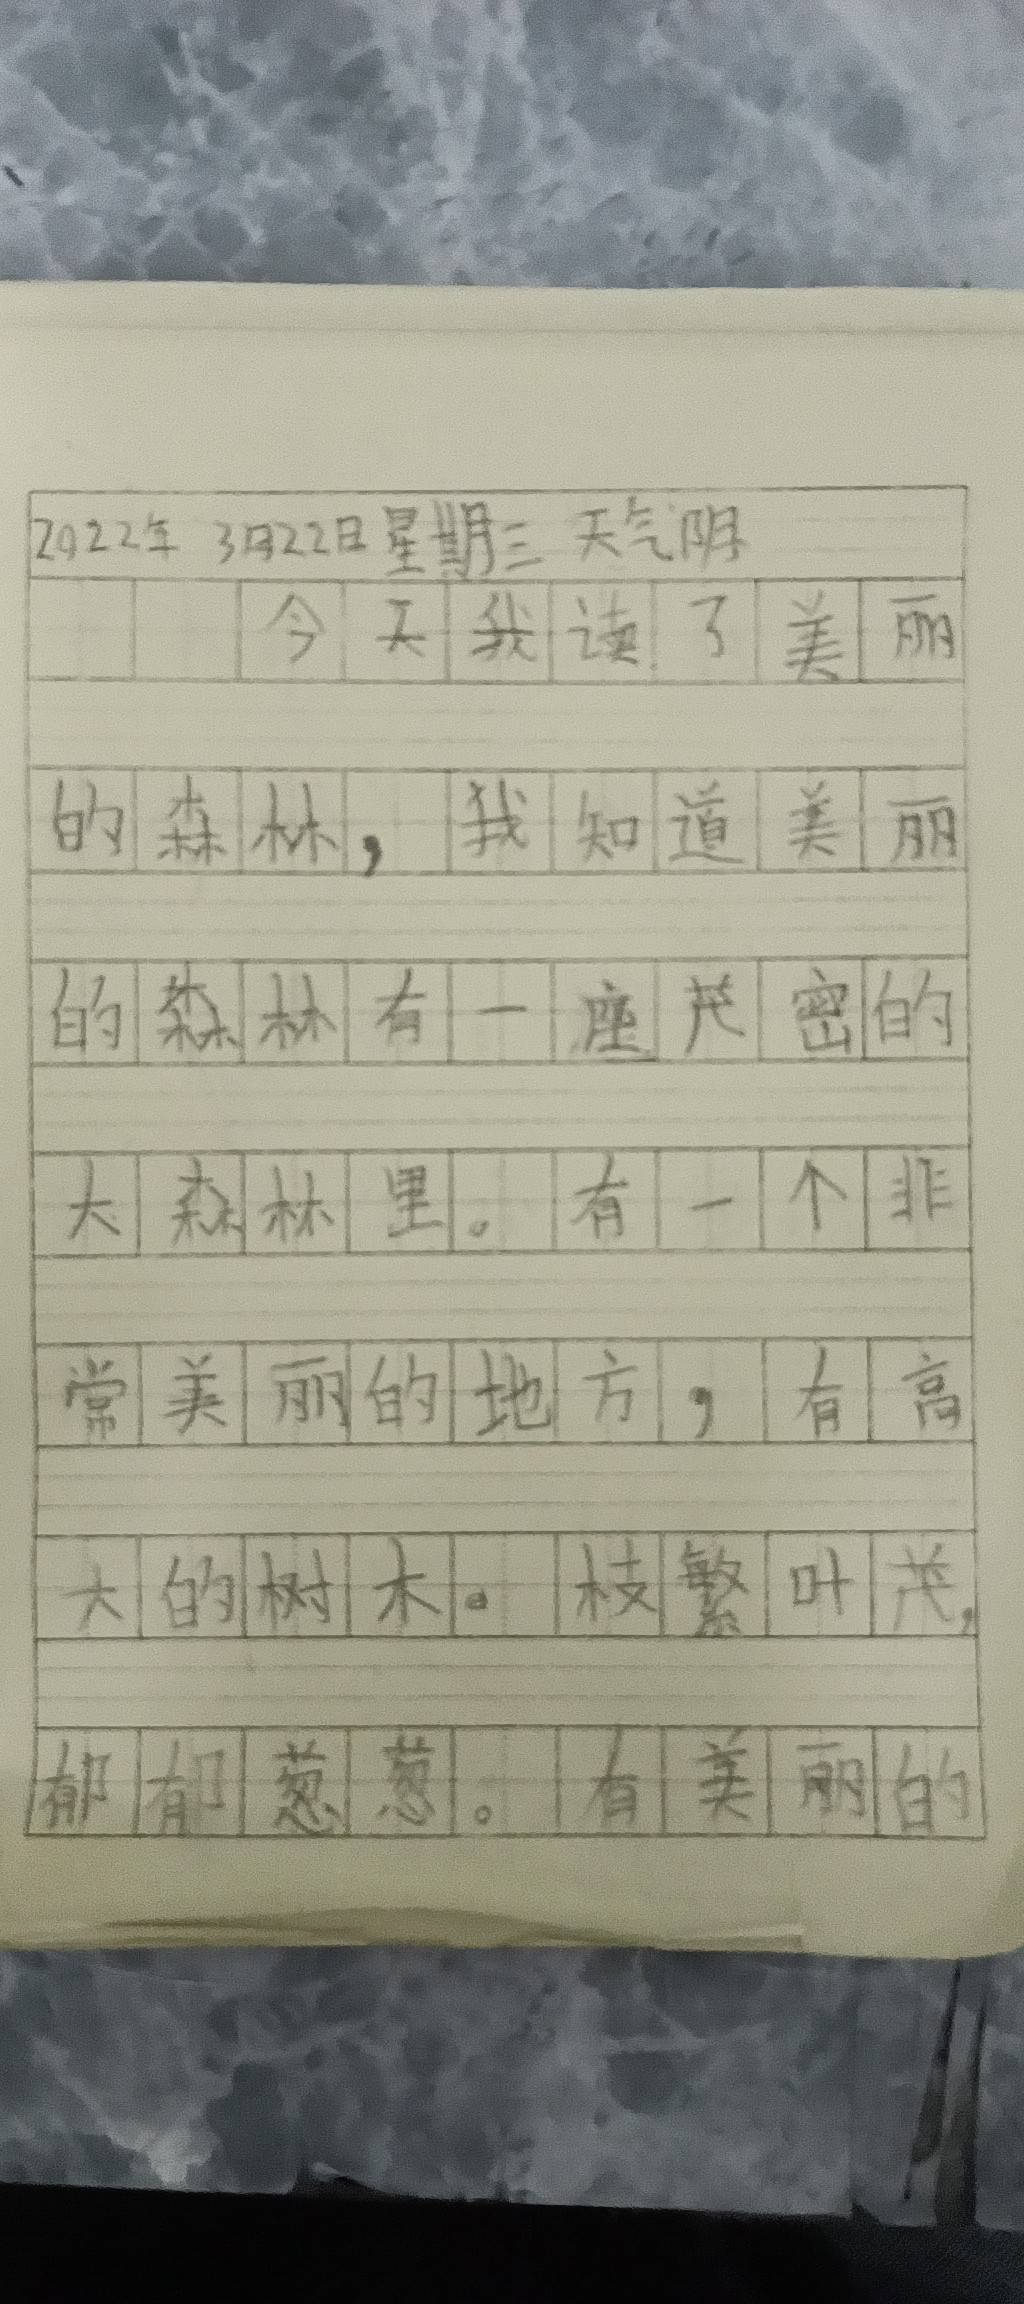 2022年 3月22日星期三 天气阴
今天我读了美丽
的森林，我知道美丽
的森林有一座茂密的
大森林里。有一个非
常美丽的地方，有高
大的树木。枝繁叶茂，
郁郁葱葱。有美丽的